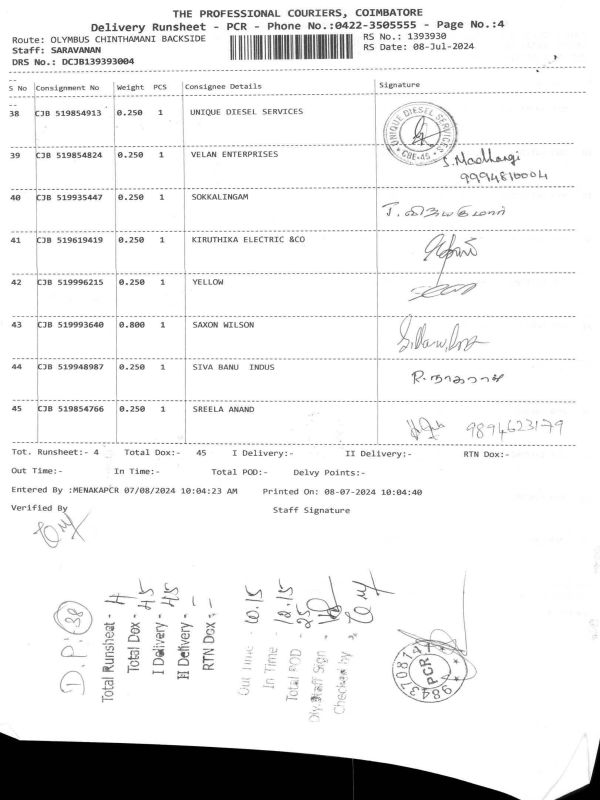 THE PROFESSIONAL COURIERS, COIMBATORE
Delivery Runsheet - PCR - Phone No.:0422-3505555 - Page No.:4
Route: OLYMBUS CHINTHAMANI BACKSIDE RS No.: 1393930
Staff: SARAVANAN RS Date: 08-Jul-2024
DRS No.: DCJB139393004
S No Consignment No Weight PCS Consignee Details Signature
38 CJB 519854913 0.250 1 UNIQUE DIESEL SERVICES
UNIQUE DIESEL SERVICES CBE-45
39 CJB 519854824 0.250 1 VELAN ENTERPRISES S. Madhangi
9994810004
40 CJB 519935447 0.250 1 SOKKALINGAM
41 CJB 519619419 0.250 1 KIRUTHIKA ELECTRIC &CO
42 CJB 519996215 0.250 1 YELLOW
43 CJB 519993640 0.800 1 SAXON WILSON
44 CJB 519948987 0.250 1 SIVA BANU INDUS
45 CJB 519854766 0.250 1 SREELA ANAND 9894623179
Tot. Runsheet:- 4 Total Dox:- 45 I Delivery:- II Delivery:- RTN Dox:-
Out Time:- In Time:- Total POD:- Delvy Points:-
Entered By :MENAKAPCR 07/08/2024 10:04:23 AM Printed On: 08-07-2024 10:04:40
Verified By Staff Signature
D.P: 38
Total Runsheet - 4
Total Dox - 45
I Delivery - 45
II Delivery - -
RTN Dox :- -
Out Time - 10.15
In Time - 12.15
Total POD - 25
Dly. Staff Sign -
Checked by
PCR